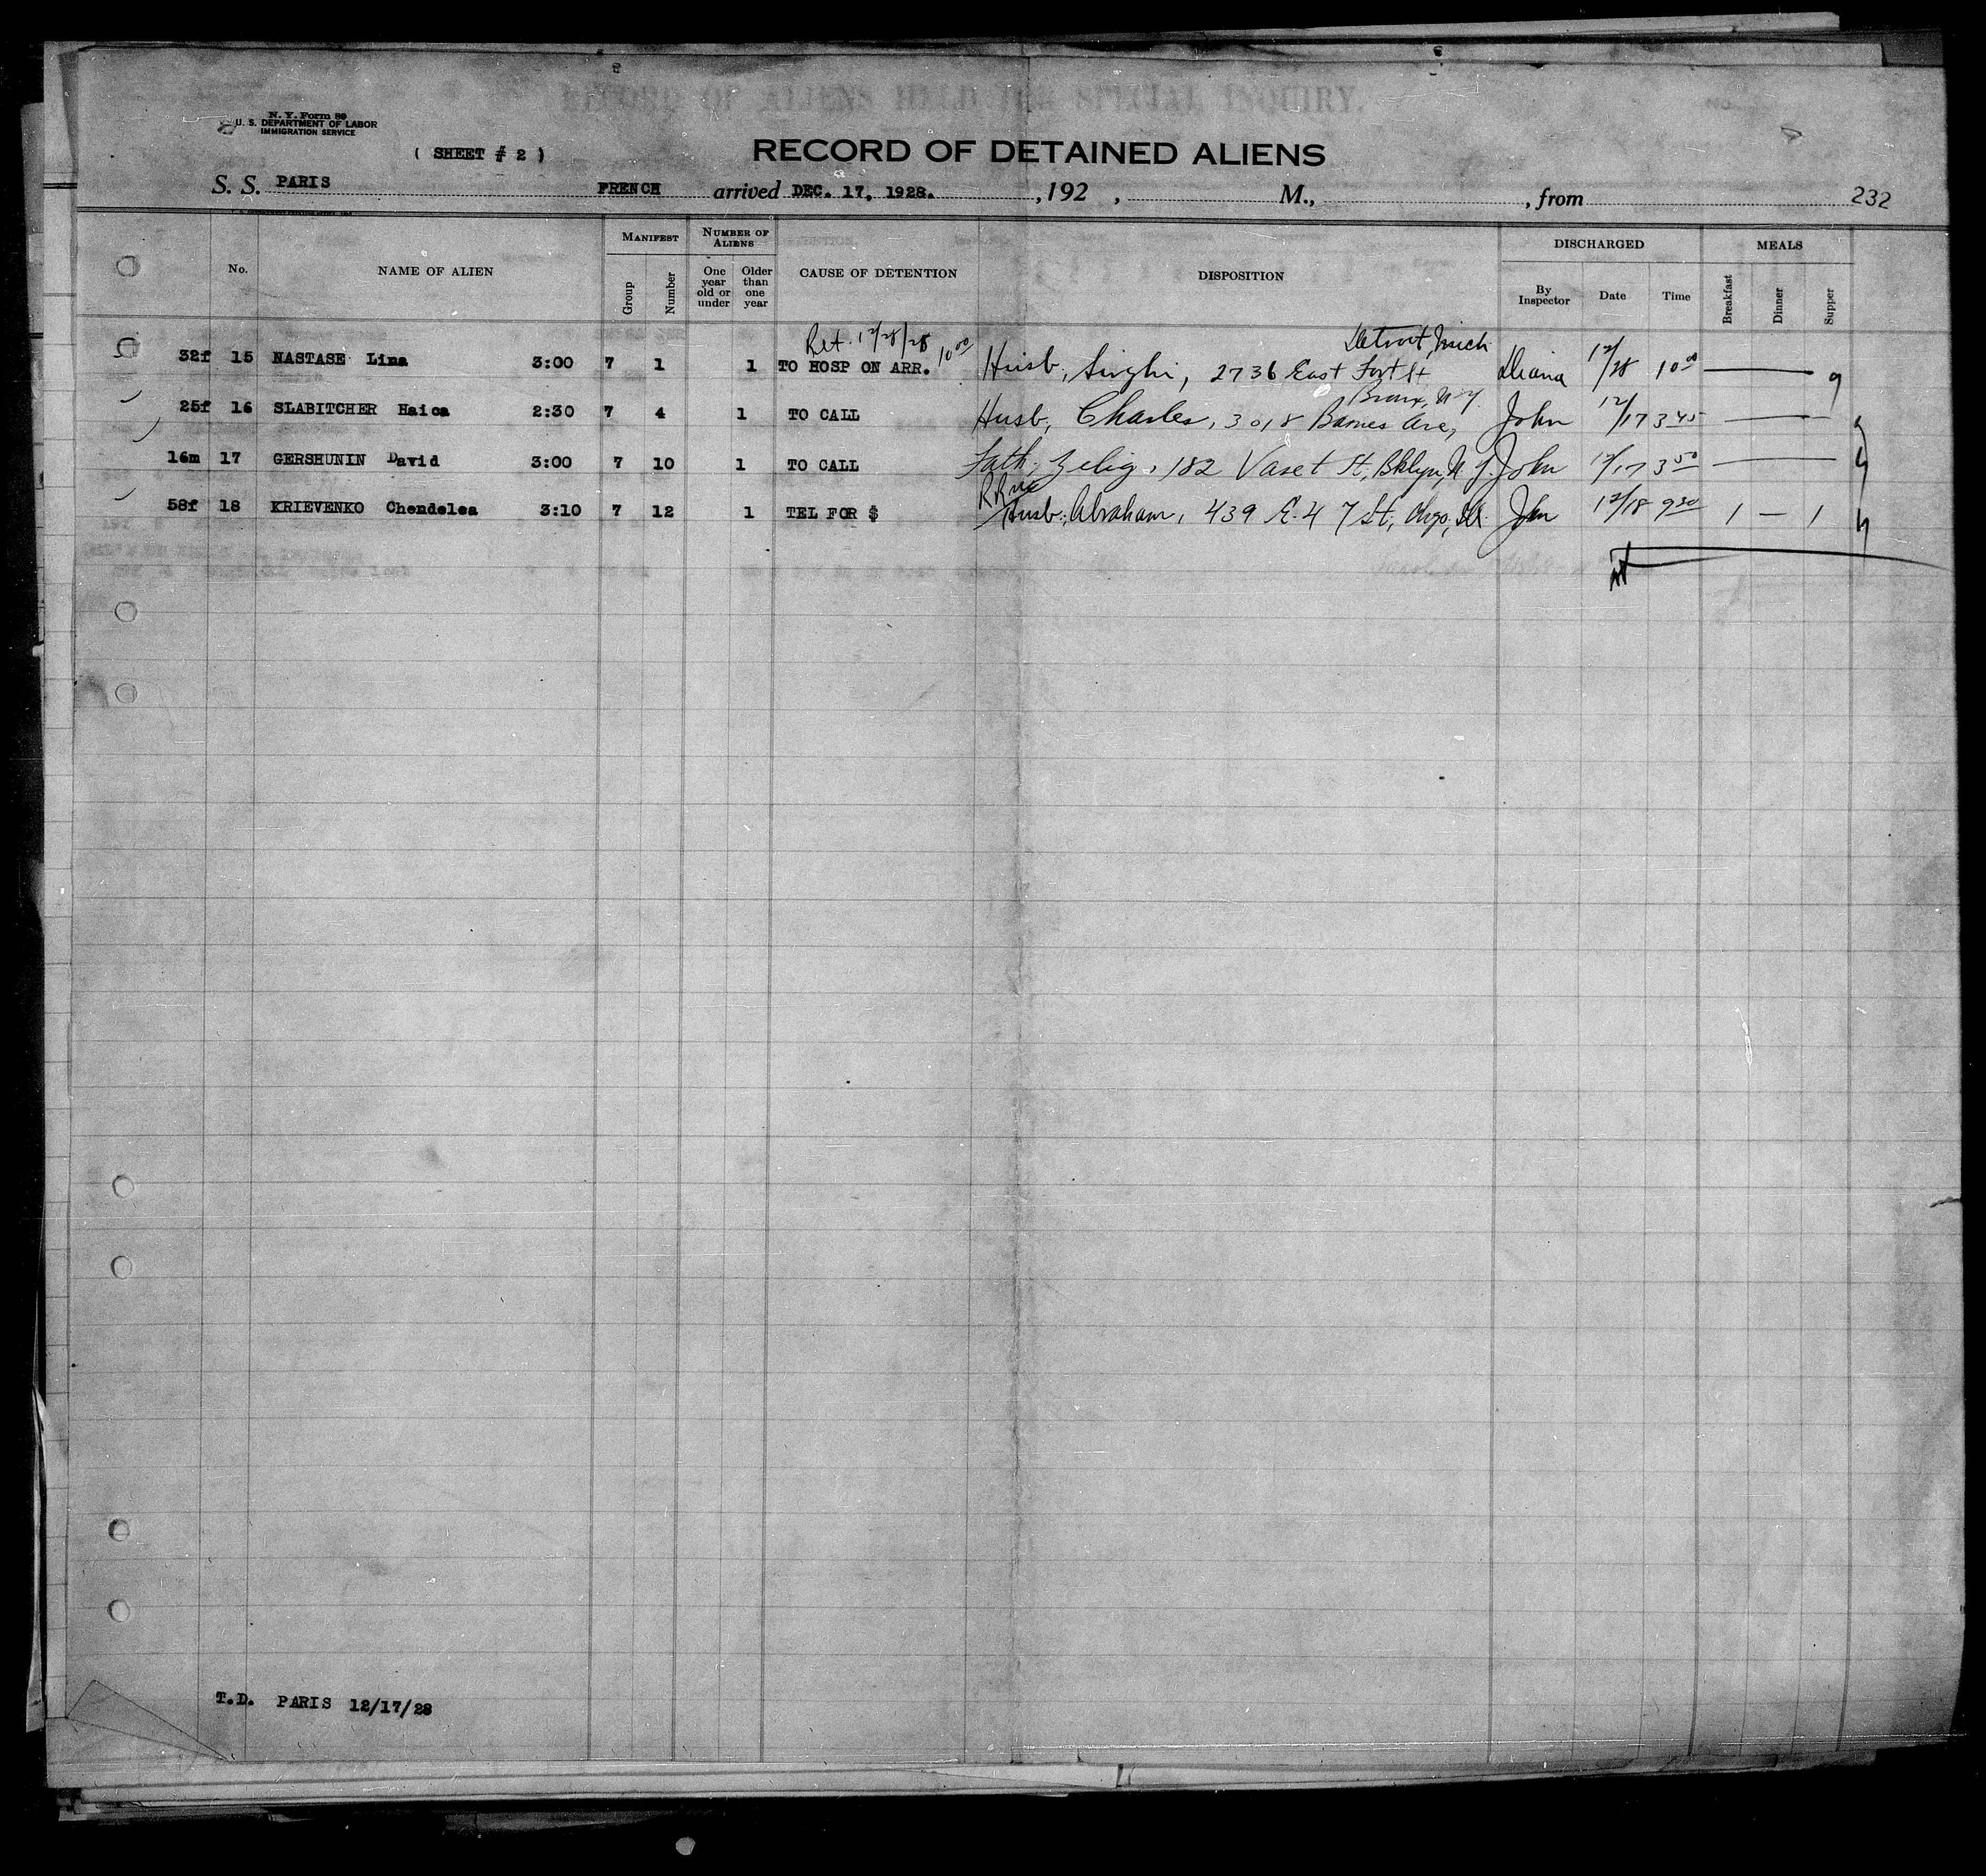 RECORD OF ALIENS HELD FOR SPECIAL INQUIRY.
N. Y. Form 89
U. S. DEPARTMENT OF LABOR
IMMIGRATION SERVICE
( SHEET # 2 )
RECORD OF DETAINED ALIENS
S. S. PARIS FRENCH arrived DEC. 17, 1928. , 192 , M., , from 232
No. NAME OF ALIEN MANIFEST Group Number NUMBER OF ALIENS One year old or under Older than one year CAUSE OF DETENTION DISPOSITION DISCHARGED By Inspector Date Time MEALS Breakfast Dinner Supper
Ret. 12/28/28 10 00 Detroit, Mich.
32f 15 NASTASE Lina 3:00 7 1 1 TO HOSP ON ARR. Husb, 2736 East Fort St Diana 12/28 10 00
Bronx, N.Y.
25f 16 SLABITCHER Haica 2:30 7 4 1 TO CALL Husb, Charles, 3018 Barnes Ave, John 12/17 3 45
16m 17 GERSHUNIN David 3:00 7 10 1 TO CALL Fath. Zelig, 182 St, Bklyn, N.Y. John 12/17 3 50
58f 18 KRIEVENKO Chendelea 3:10 7 12 1 TEL FOR $ Husb, Abraham, 439 E. 47 St, Chgo, Ill. John 12/18 9 30 1 — 1
T.D. PARIS 12/17/28